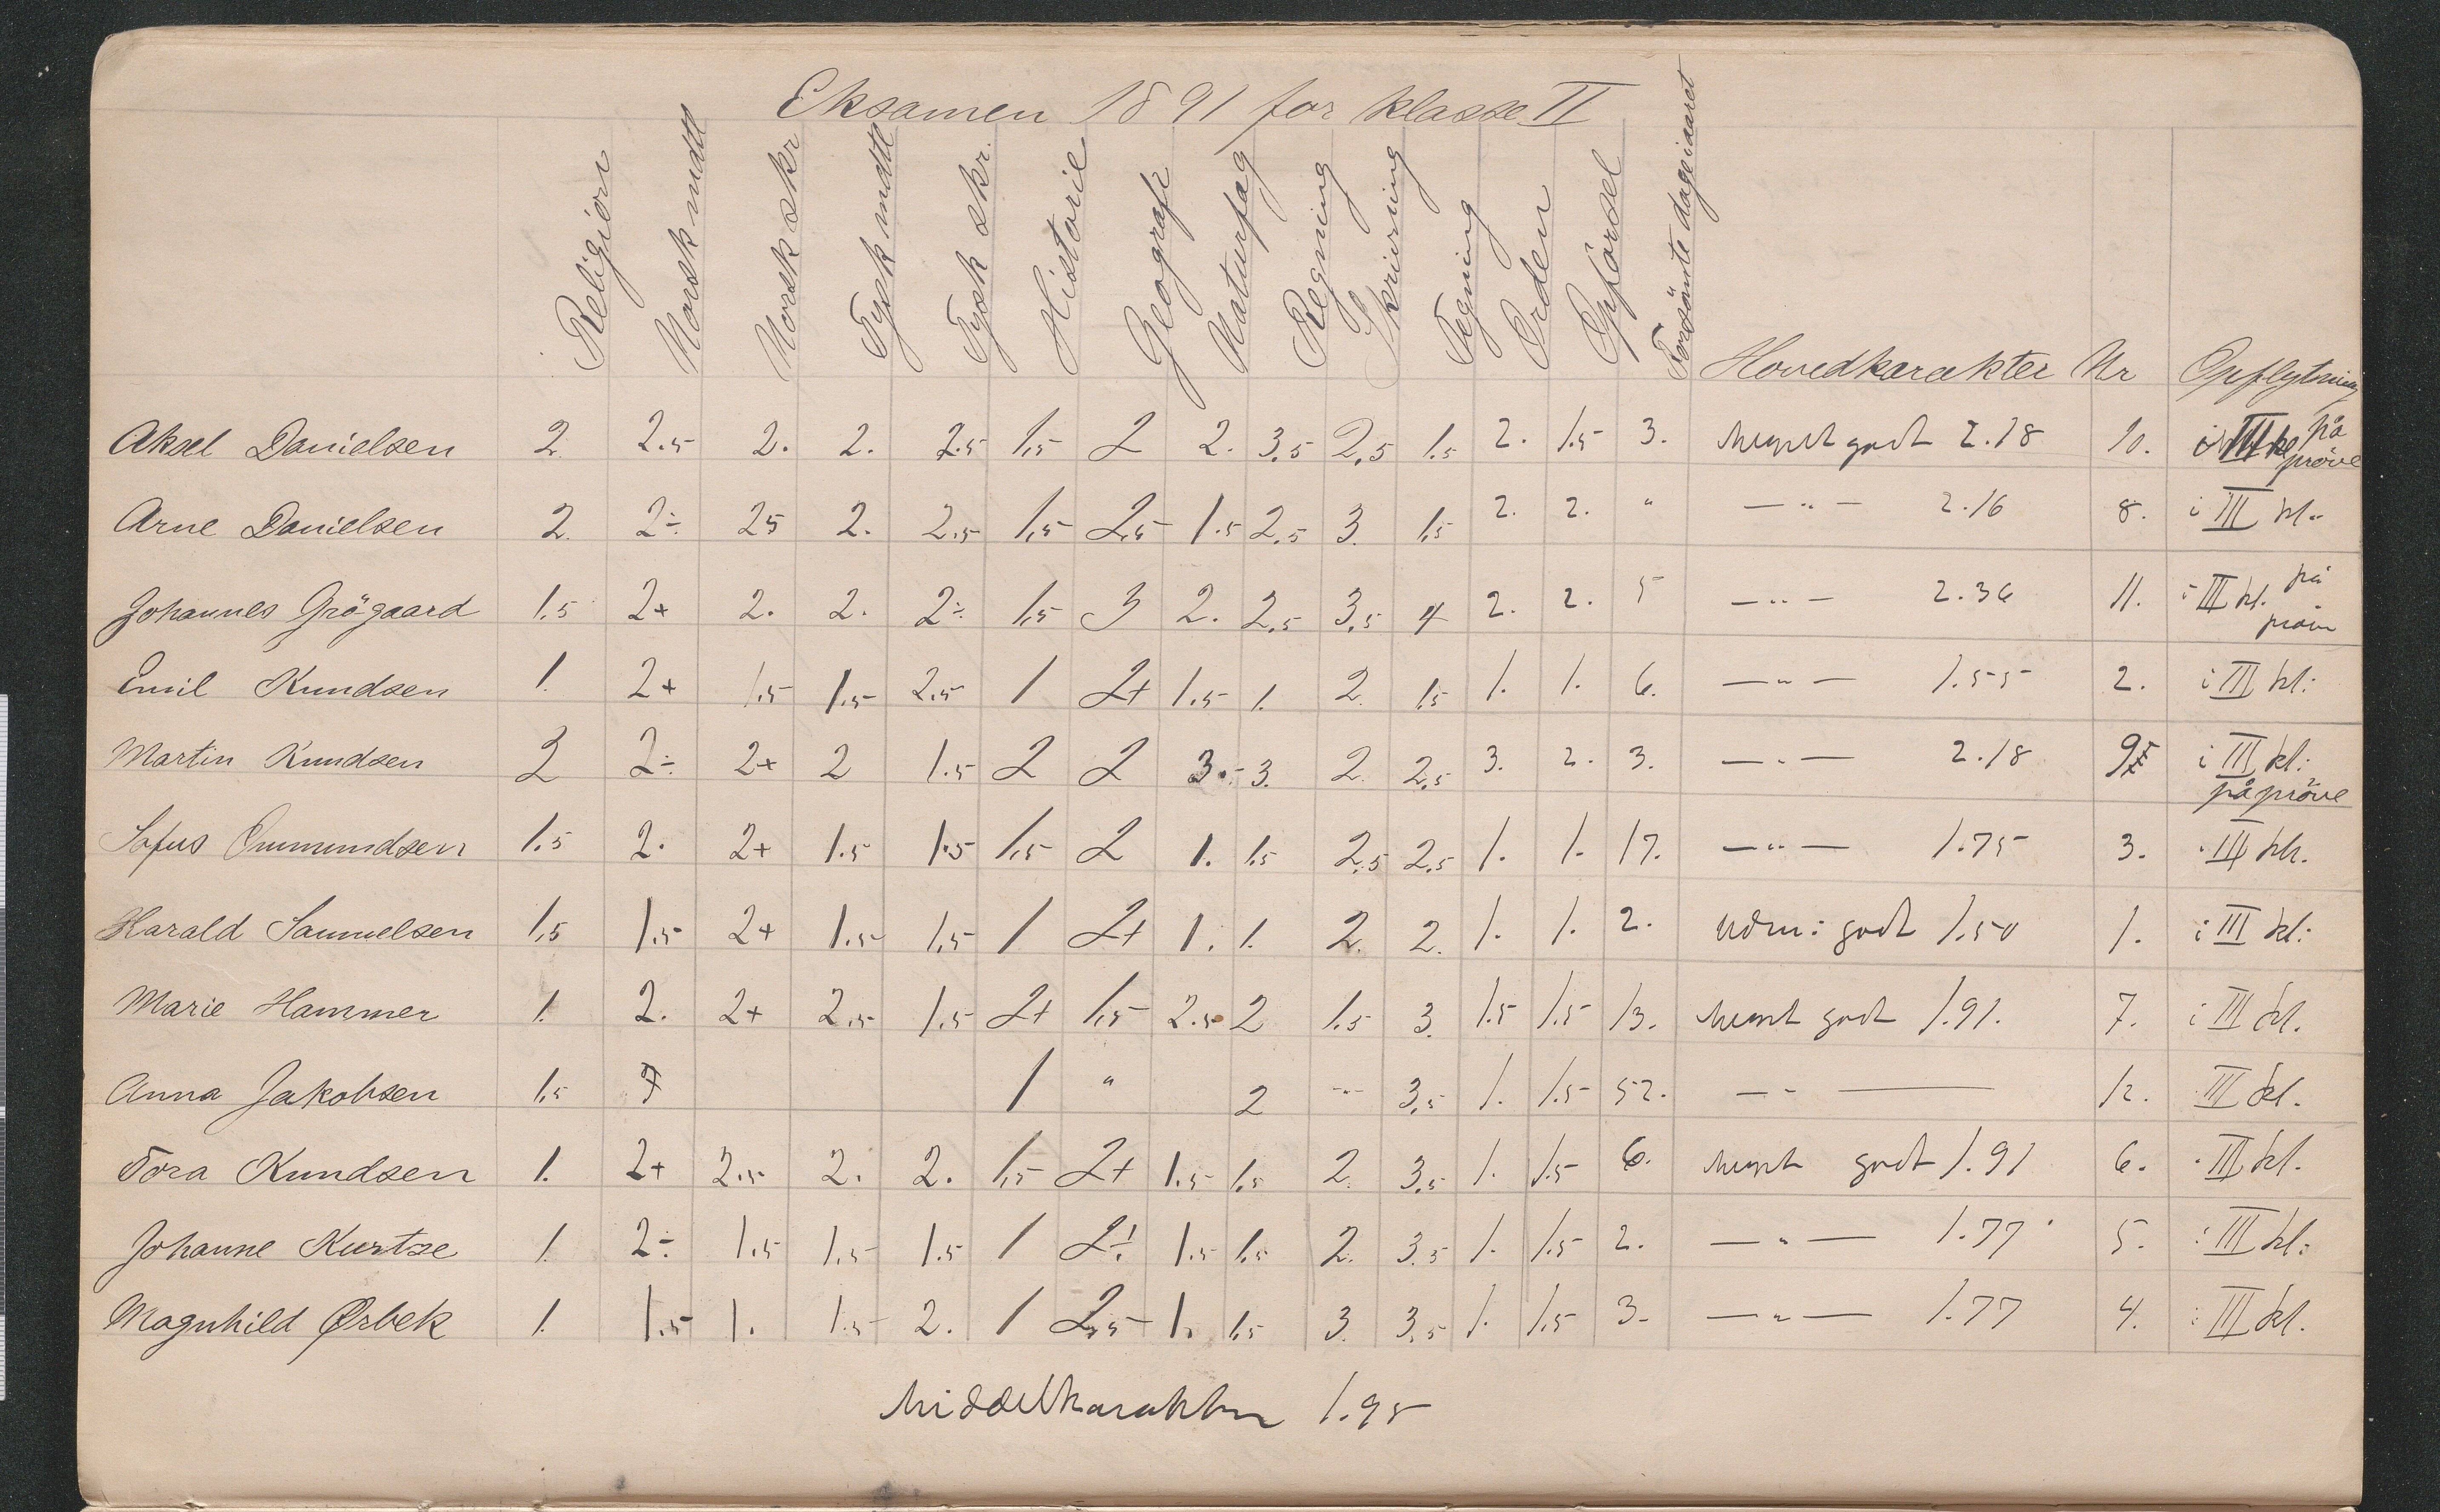 Eksamen 1891 for klasse II
Religion Norsk mdtl Norsk skr Tysk mdtl Tysk skr. Historie Geografi Naturfag Regning Skrivning Tegning Orden Opförsel Forsömte dage i aaret Hovedkarakter Nr Opflytning
Aksel Danielsen 2. 2.5 2. 2. 2.5 1.5 2 2. 3.5 2.5 1.5 2. 1.5 3. meget godt 2.18 10. i III kl på pröve
Arne Danielsen 2. 2÷ 25 2. 2.5 1.5 2.5 1.5 2.5 3. 1.5 2. 2. " — " — 2.16 8. i III kl.
Johannes Grögaard 1.5 2+ 2. 2. 2÷ 1.5 3 2. 2.5 3.5 4 2. 2. 5 — " — 2.36 11. i III kl. på pröve
Emil Knudsen 1. 2+ 1.5 1.5 2.5 1 2+ 1.5 1. 2. 1.5 1. 1. 6. — " — 1.55 2. i III kl:
Martin Knudsen 2 2÷ 2+ 2 1.5 2 2 3. 3. 2. 2.5 3. 2. 3. — " — 2.18 9 i III kl: på pröve
Sofus Ommundsen 1.5 2. 2+ 1.5 1.5 1.5 2 1. 1.5 2.5 2.5 1. 1. 17. — " — 1.75 3. i III kl.
Harald Samuelsen 1.5 1.5 2+ 1.5 1.5 1 2+ 1. 1. 2. 2. 1. 1. 2. udm: godt 1.50 1. i III kl:
Marie Hammer 1. 2. 2+ 2.5 1.5 2+ 1.5 2.5 2 1.5 3. 1.5 1.5 13. meget godt 1.91. 7. i III kl.
Anna Jakobsen 1.5 1 " 2 " 3.5 1. 1.5 52. — " — 12. III kl.
Tora Knudsen 1. 2+ 2.5 2. 2. 1.5 2+ 1.5 1.5 2. 3.5 1. 1.5 6. meget godt 1.91 6. i III kl.
Johanne Kurtze 1. 2÷ 1.5 1.5 1.5 1 2÷ 1.5 1.5 2. 3.5 1. 1.5 2. — " — 1.77 5. i III kl:
Magnhild Ørbek 1. 1.5 1. 1.5 2. 1 2.5 1. 1.5 3. 3.5 1. 1.5 3. — " — 1.77 4. i III kl.
Middelkarakter 1.95